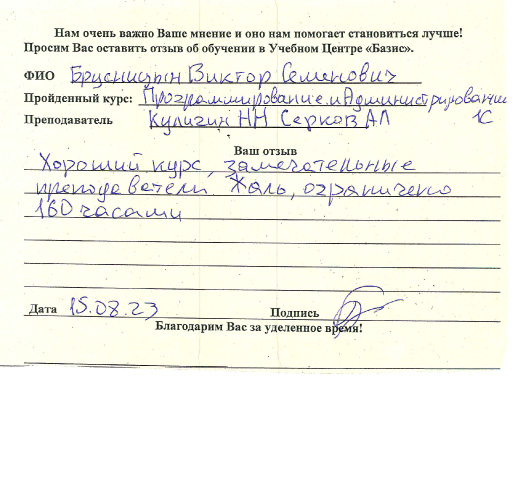 Нам очень важно Ваше мнение и оно нам помогает становиться лучше!
Просим Вас оставить отзыв об обучении в Учебном Центре «Базис».
ФИО Брусницын Виктор Семенович
Пройденный курс: Программирование и Администрирование 1С
Преподаватель Кулигин НН Серков АЛ
Ваш отзыв
Хороший курс, замечательные
преподаватели. Жаль, ограничено
160 часами
Дата 15.08.23 Подпись
Благодарим Вас за уделенное время!